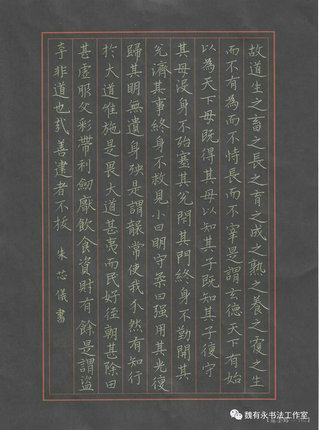 故道生之畜之長之育之成之熟之養之覆之生
而不有為而不恃長而不宰是謂玄德天下有始
以為天下母既得其母以知其子既知其子復守
其母没身不殆塞其兌閉其門終身不勤開其
兌濟其事終身不救見小曰明守柔曰强用其光復
歸其明無遺身殃是謂襲常使我介然有知行
於大道惟施是畏大道甚夷而民好徑朝甚除田
甚虛服文彩帶利劒厭飲食資財有餘是謂盜
夸非道也哉善建者不拔 朱芯儀書
魏有永书法工作室